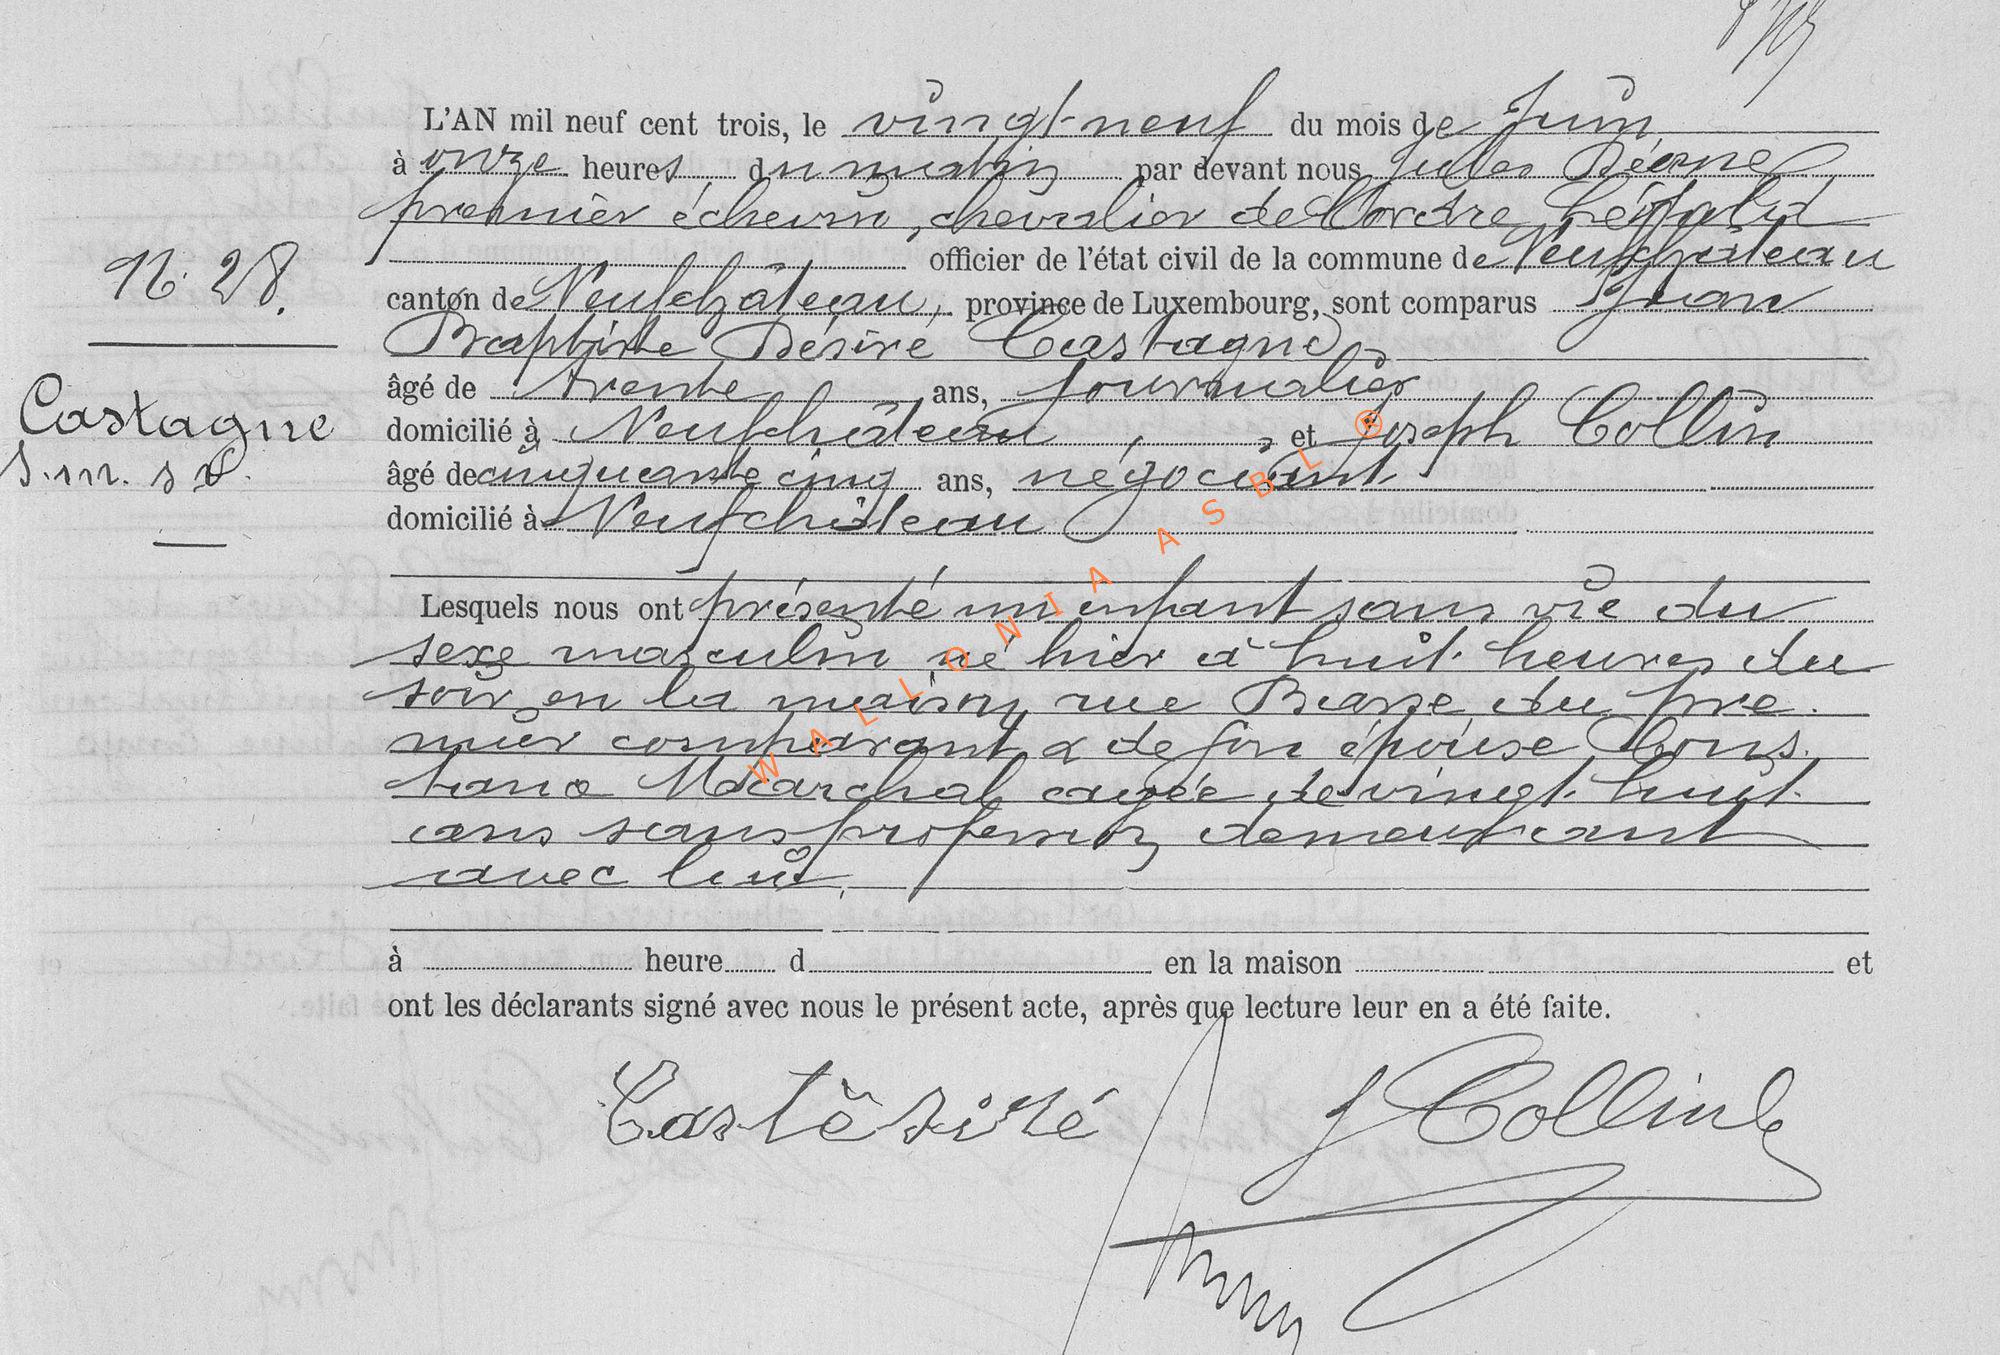 L'AN mil neuf cent trois, le vingt-neuf du mois de Juin
à onze heures du matin par devant nous Jules
premier échevin, chevalier de l'ordre Léopold
officier de l'état civil de la commune de Neufchâteau
N. 28.
canton de Neufchâteau, province de Luxembourg, sont comparus Jean
Baptiste Désiré Castagne
âgé de trente ans, journalier
Castagne
domicilié à Neufchâteau, et Joseph Collin
S. m. s v.
âgé de cinquante cinq ans, négociant
domicilié à Neufchâteau
Lesquels nous ont présenté un enfant sans vie du
sexe masculin né hier à huit heures du
soir en la maison, rue Basse du pre
mier comparant & de son épouse Cons
tance Maréchal agée de vingt huit
ans sans profession demeurant
avec lui.
à heure d en la maison et
ont les déclarants signé avec nous le présent acte, après que lecture leur en a été faite.
J Collin
WALLONIA ASBL ®